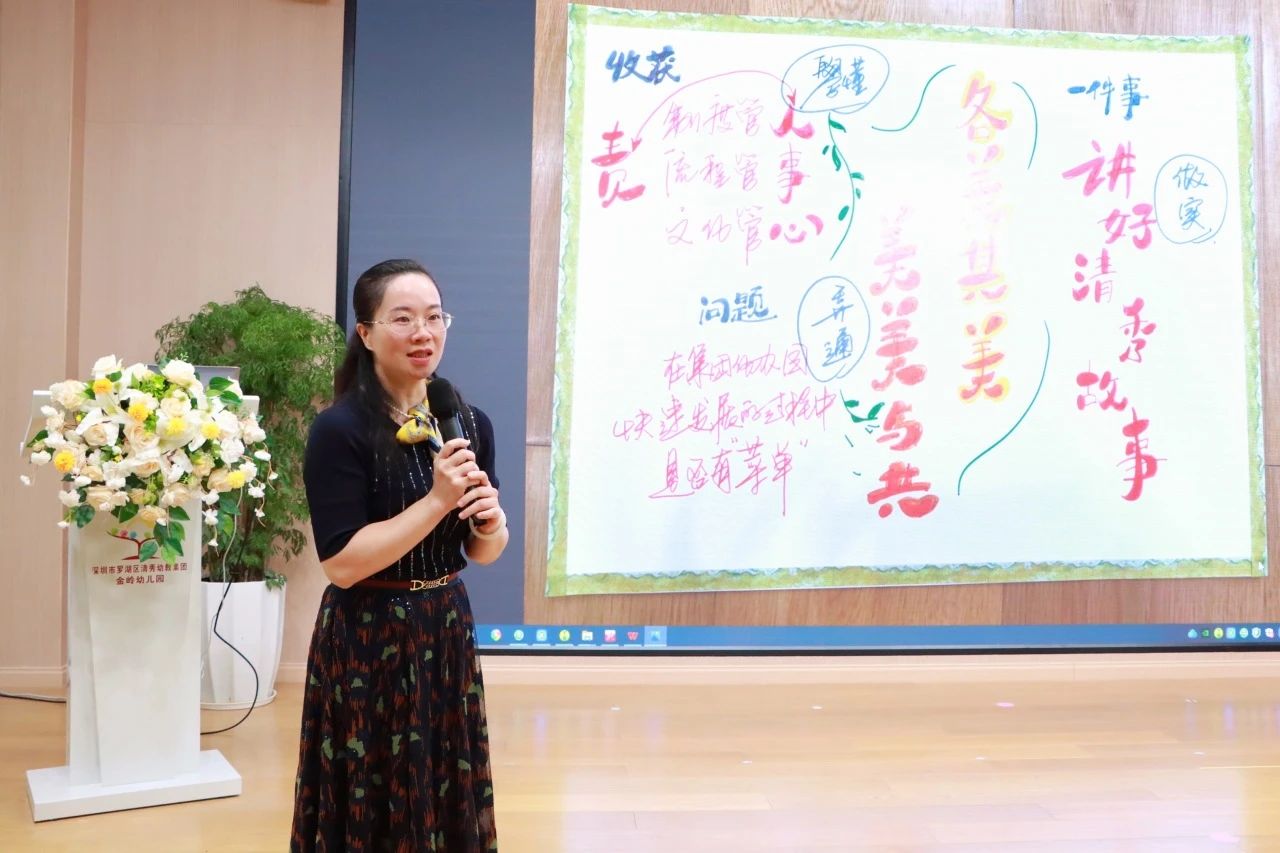 收获
學懂
责
制度管人
流程管事
文化管心
问题
弄通
在集团幼儿园
快速发展的过程中
是否有“菜单”
各美其美
美美与共
一件事
做实
讲好清秀故事
深圳市罗湖区清秀幼教集团
金岭幼儿园